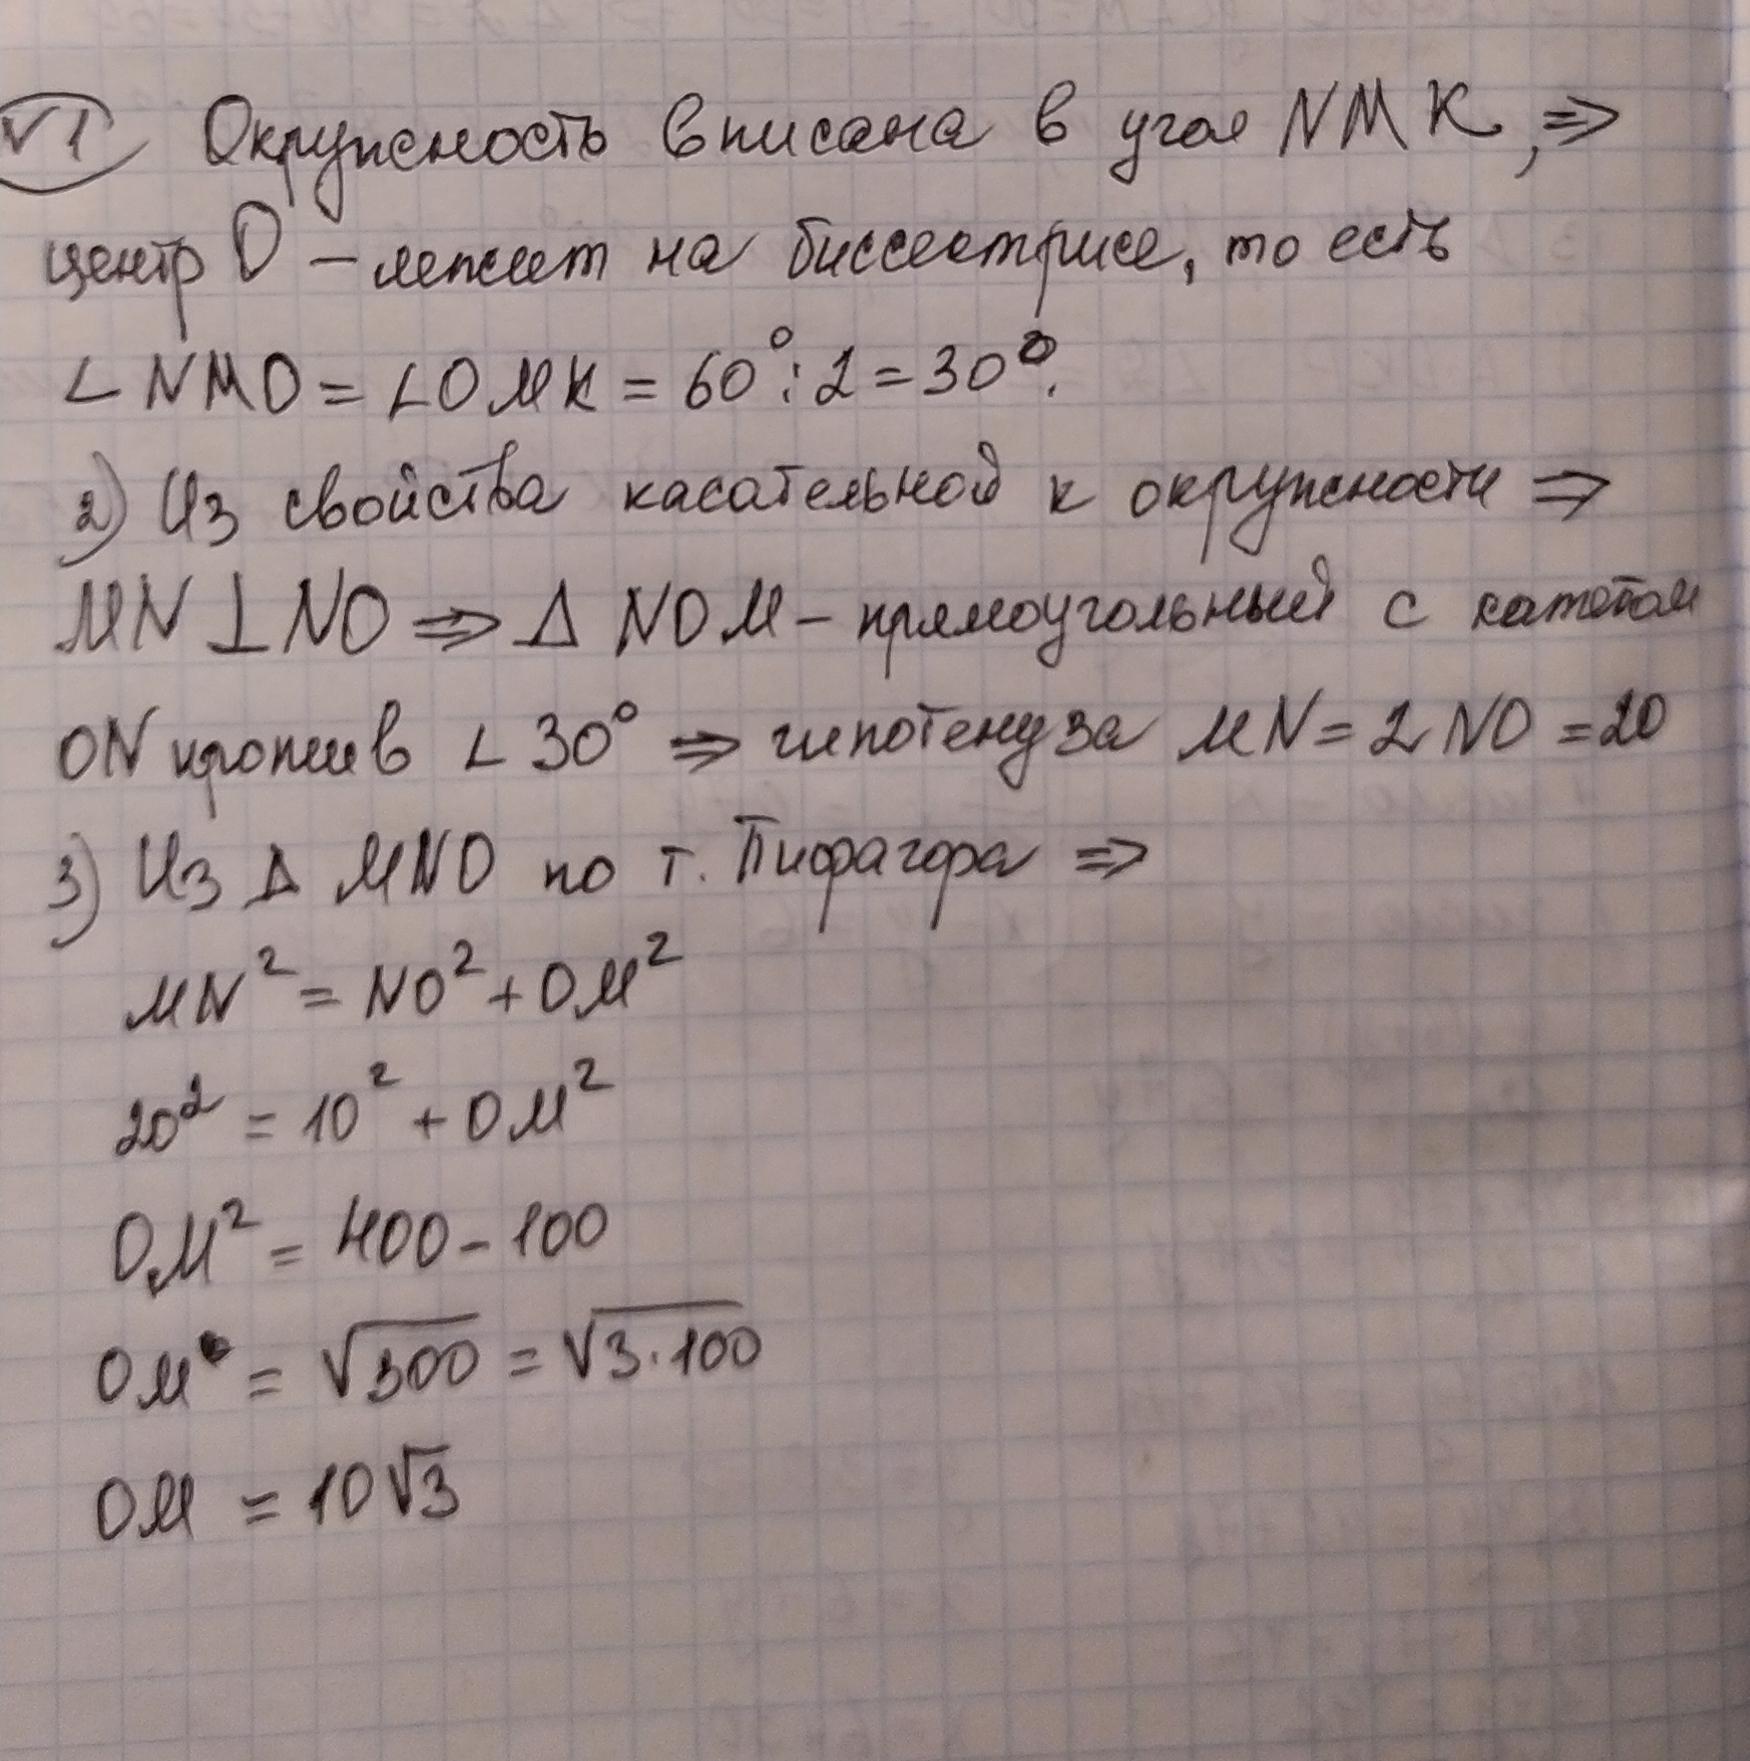 √1 Окружность вписана в угол NMK, ⇒
центр O – лежит на биссектрисе, то есть
∠NMO = ∠OMK = 60° : 2 = 30°.
2) Из свойства касательной к окружности ⇒
MN ⊥ NO ⇒ Δ NOM – прямоугольный с катетом
ON против ∠30° ⇒ гипотенуза MN = 2NO = 20
3) Из Δ MNO по т. Пифагора ⇒
MN² = NO² + OM²
20² = 10² + OM²
OM² = 400 – 100
OM = √300 = √3·100
OM = 10√3